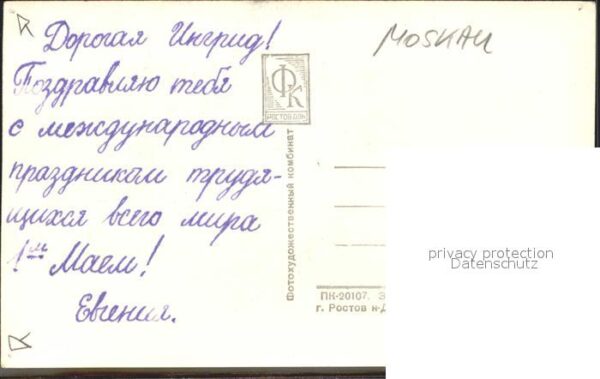 Дорогая Ингрид!
Поздравляю тебя
с международным
праздником трудя-
щихся всего мира
1ым Маем!
Евгения.
MOSKAU
ФК
РОСТОВ ДОН
Фотохудожественный комбинат
ПК-20107.
г. Ростов н-Д
privacy protection
Datenschutz